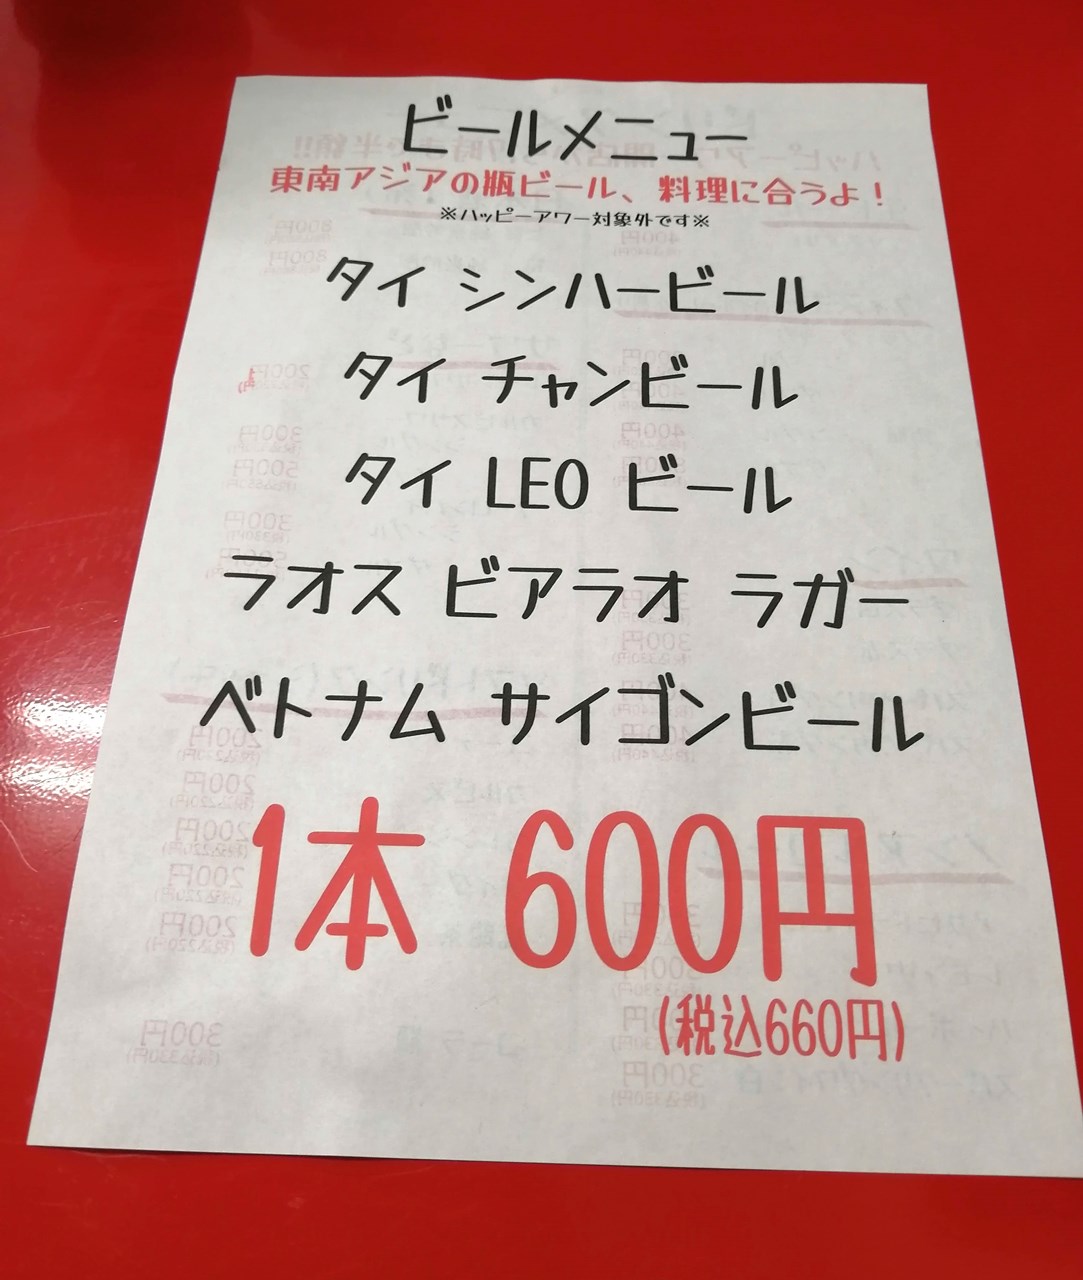 ビールメニュー
東南アジアの瓶ビール、料理に合うよ！
※ハッピーアワー対象外です※
タイ シンハービール
タイ チャンビール
タイ LEO ビール
ラオス ビアラオ ラガー
ベトナム サイゴンビール
1本 600円
(税込660円)